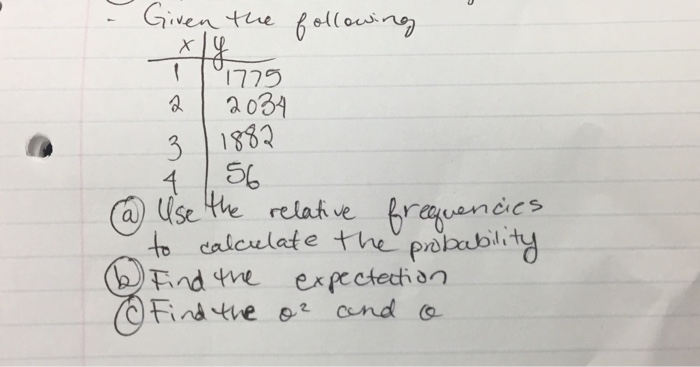 - Given the following
x | y
1 | 1775
2 | 2034
3 | 1882
4 | 56
(a) Use the relative frequencies
to calculate the probability
(b) Find the expectection
(c) Find the σ² and σ